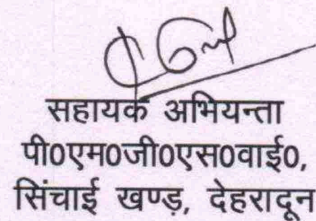 सहायक अभियन्ता
पी0एम0जी0एस0वाई0,
सिंचाई खण्ड, देहरादून